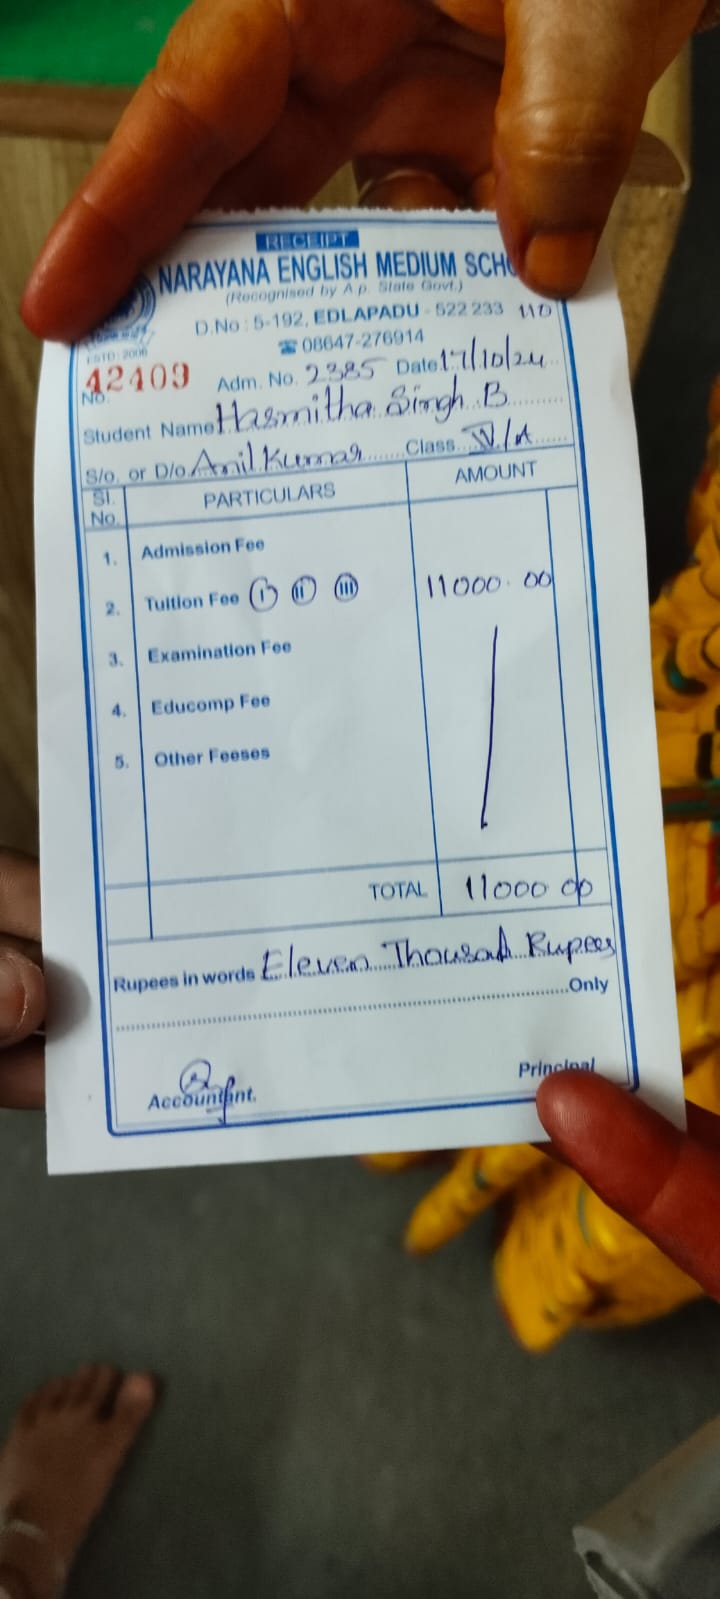 RECEIPT
NARAYANA ENGLISH MEDIUM
(Recognised by A.p. State Govt.)
D.No : 5-192, EDLAPADU - 522 233 110
☎ 08647-276914
ESTD: 2006
No. 42409 Adm. No. 2385 Date 17/10/24
Student Name Hasmitha Singh. B
S/o. or D/o. Anil Kumar Class IV/A
Sl. No. PARTICULARS AMOUNT
1. Admission Fee
2. Tuition Fee I II III 11000.00
3. Examination Fee
4. Educomp Fee
5. Other Feeses
TOTAL 11000 00
Rupees in words Eleven Thousad Rupees
Only
Accountant. Principal